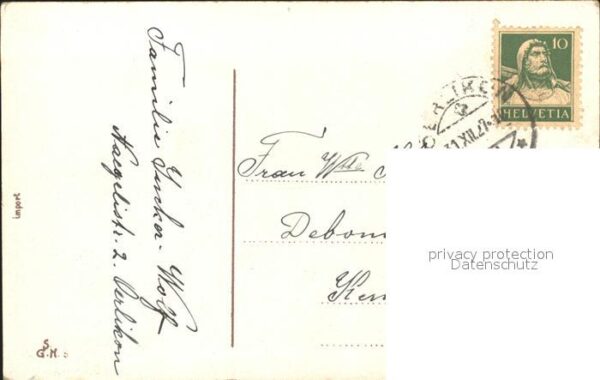 Familie Yucker-Wolf
Naegelistr. 2. Oerlikon
import
S
G.H.
10
HELVETIA
OERLIKON
XII.27
Frau Wtte
Debon
Kem
privacy protection
Datenschutz